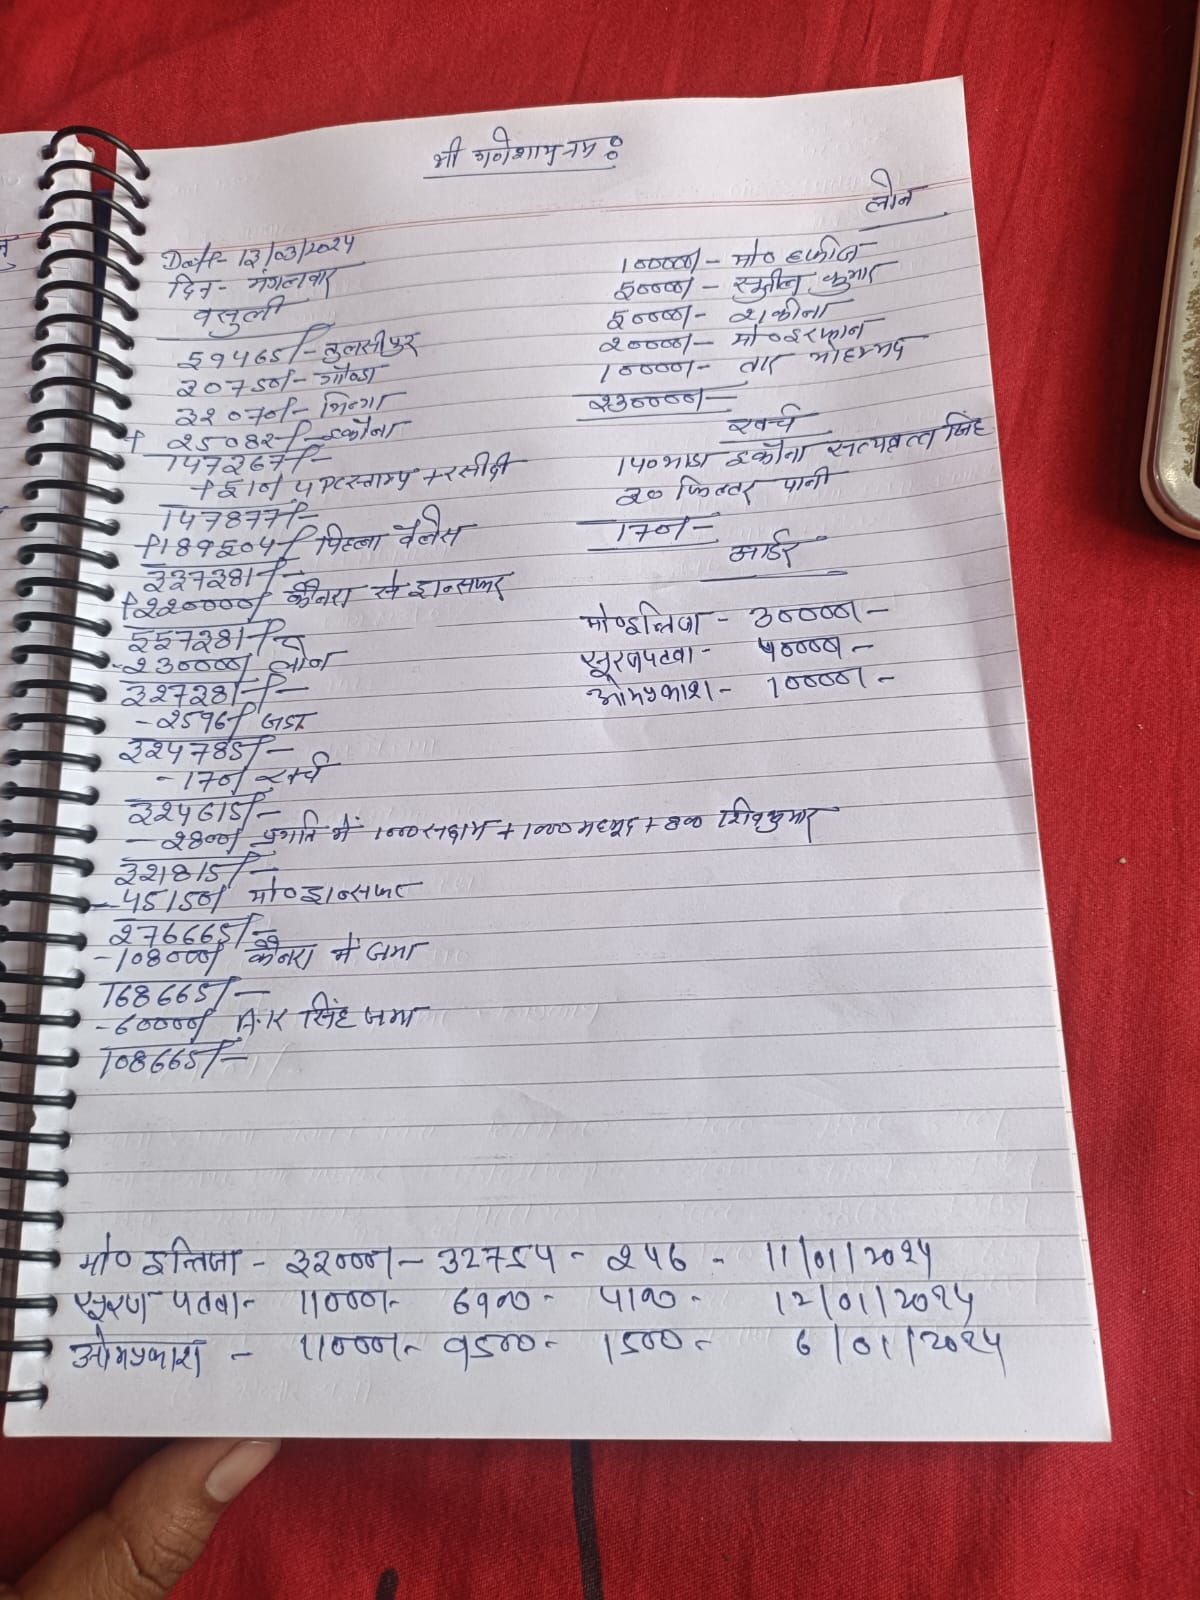 श्री गणेशाय नमः
Date- 12/03/2024
दिन- मंगलवार
वसुली
59465/- तुलसीपुर
30750/- गोण्डा
32070/- भिन्गा
+ 25082/- इकौना
147267/-
+ 510/ 5 PC स्टाम्प + रसीदी
147877/-
+189504/- पिछला वैलेंस
337381/-
+220000/ कैनरा से ट्रान्सफर
557381/-
-230000/ लोन
327381/-
-2596/
324785/-
-170/ खर्च
324615/-
-2800/ प्रगति में 1000 सद्दाम + 1000 महमूद + 800 शिवकुमार
321815/-
-45150/ मो० ट्रान्सफर
276665/-
-108000/ कैनरा में जमा
168665/-
-60000/ A.K सिंह जमा
108665/-
लोन
100000/- मो० हफीज
50000/- सुनील कुमार
50000/- शकीना
20000/- मो० इरफान
10000/- तार मोहम्मद
230000/-
खर्च
140 भाड़ा इकौना सत्यव्रत सिंह
30 फिल्टर पानी
170/-
आर्डर
मो० इन्तिजा - 30000/-
सूरज पटवा - 50000/-
ओमप्रकाश - 10000/-
मो० इन्तिजा - 33000/- 32754 - 246 - 11/01/2024
सूरज पटवा - 11000/- 6900 - 4100 - 12/01/2024
ओमप्रकाश - 11000/- 9500 - 1500 - 6/01/2024